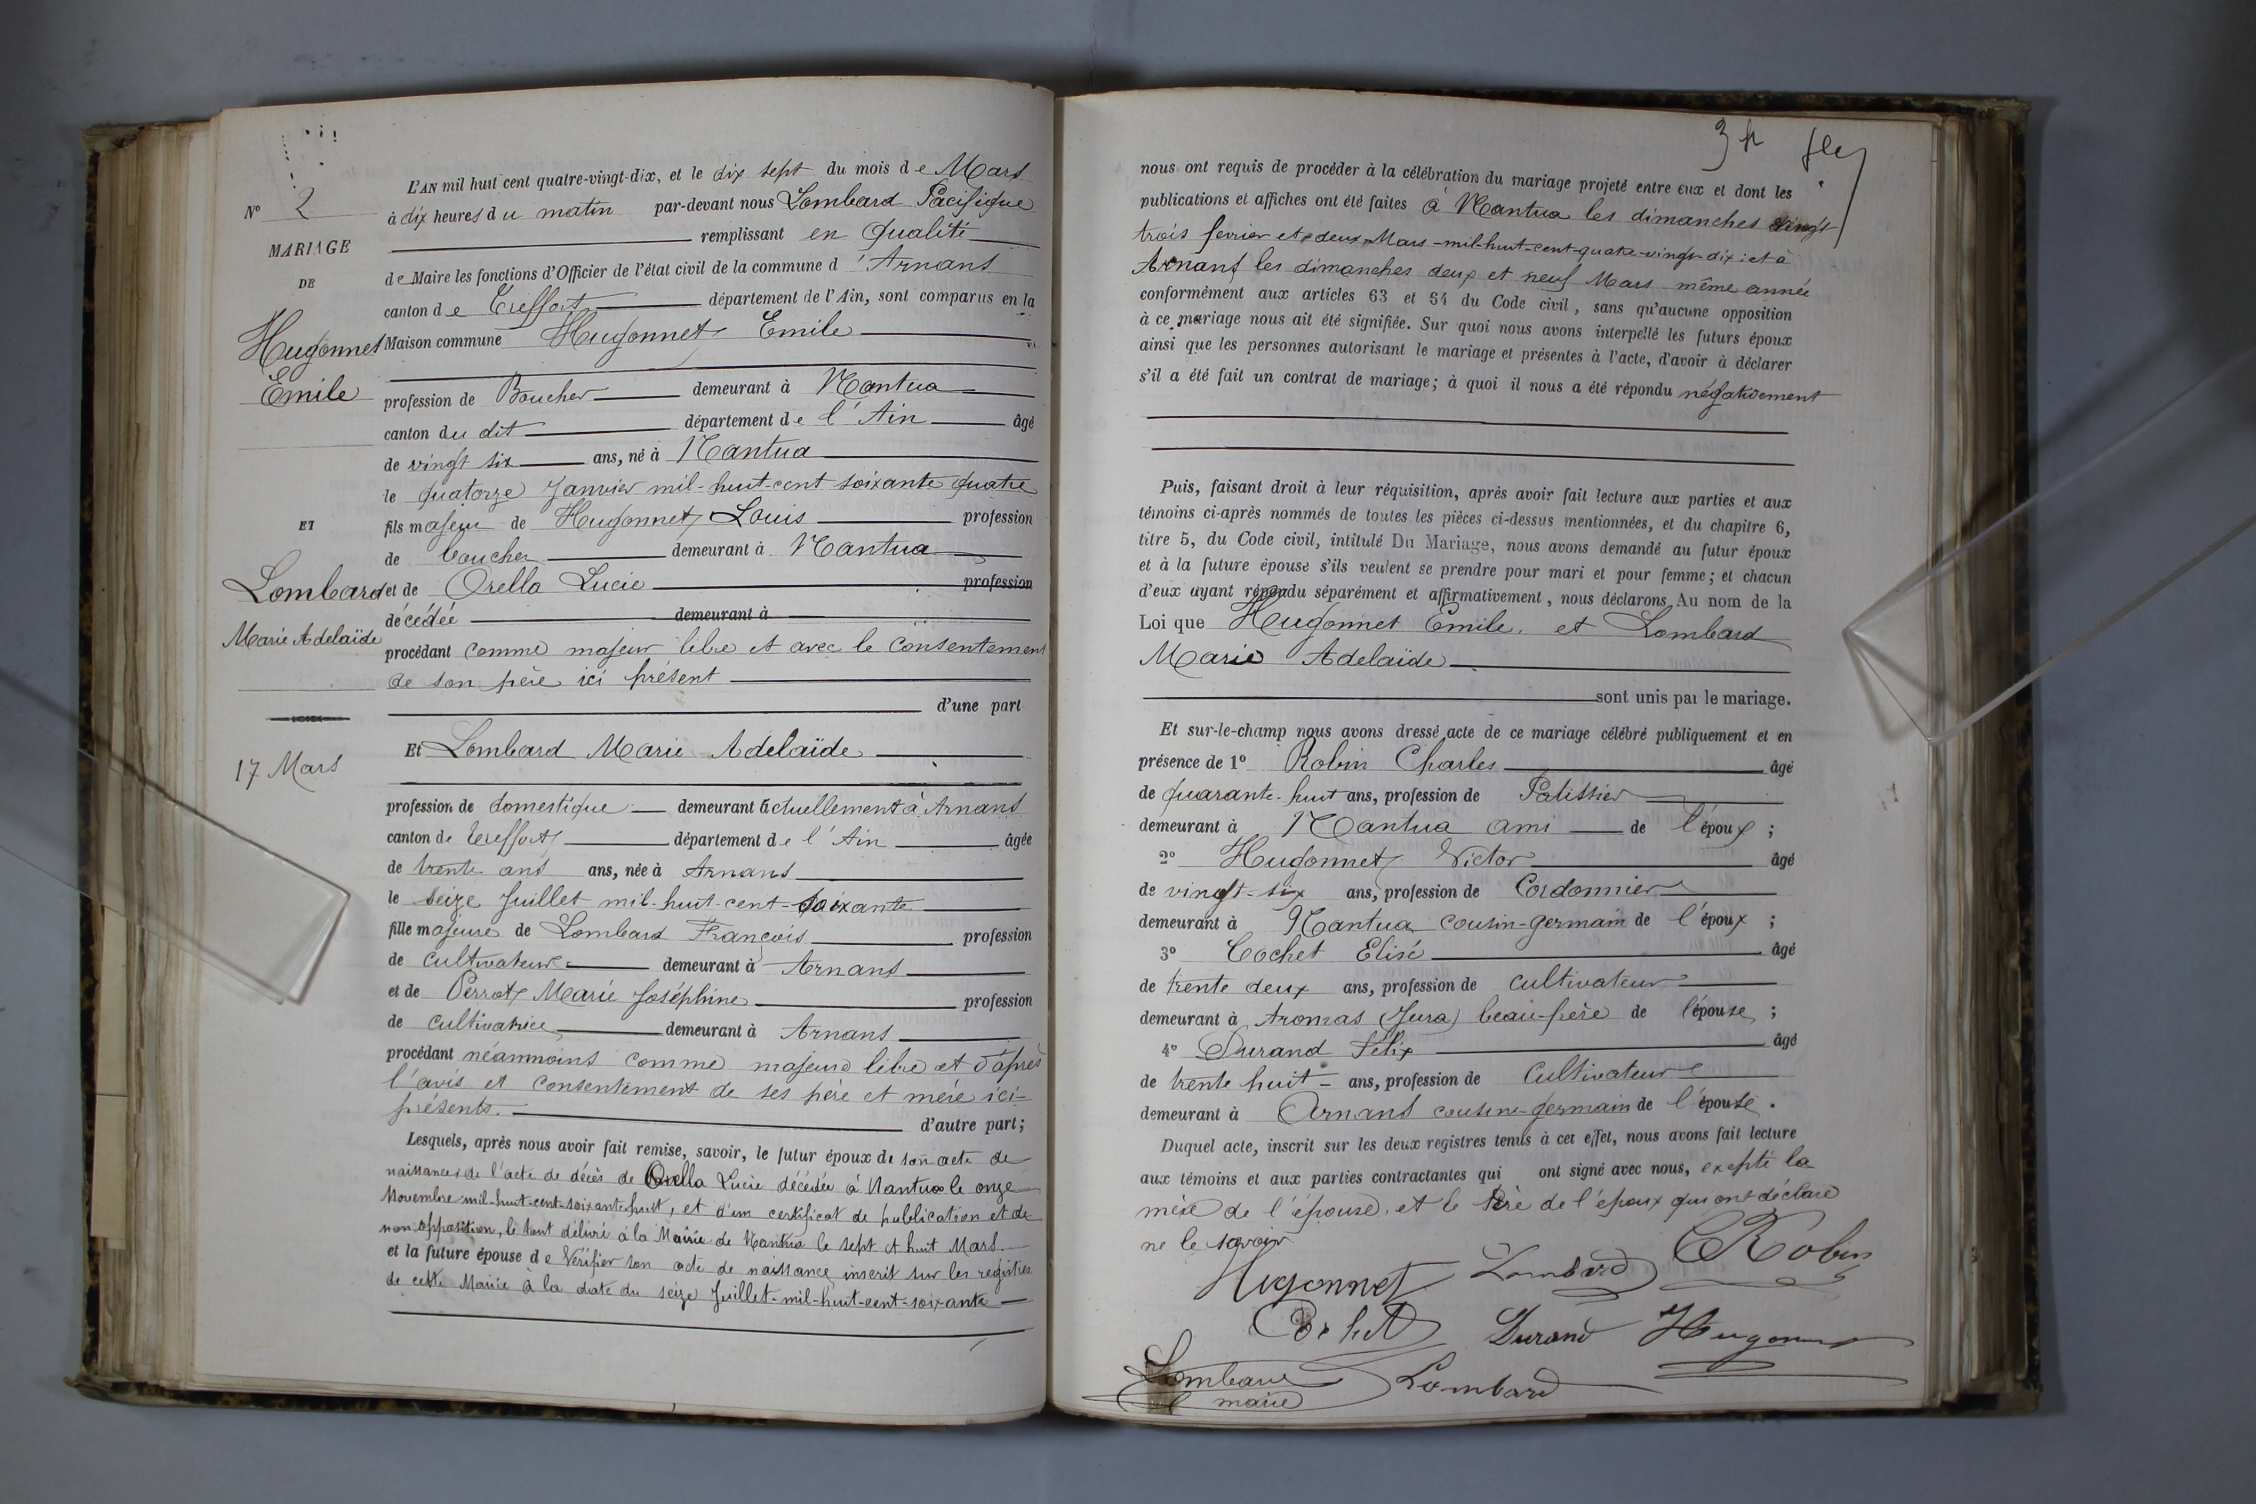 N° 2
MARIAGE
DE
Hugonnet
Emile
ET
Lombard
Marie Adelaïde
17 Mars
L'AN mil huit cent quatre-vingt-dix, et le dix sept du mois de Mars
à dix heures du matin par-devant nous Lombard Pacifique
remplissant en qualité
de Maire les fonctions d'Officier de l'état civil de la commune d'Arnans
canton de Treffort département de l'Ain, sont comparus en la
Maison commune Hugonnet Emile
profession de Boucher demeurant à Nantua
canton du dit département de l'Ain âgé
de vingt six ans, né à Nantua
le quatorze Janvier mil-huit-cent soixante quatre
fils majeur de Hugonnet Louis profession
de boucher demeurant à Nantua
et de Orella Lucie profession
décédée demeurant à
procédant comme majeur libre et avec le consentement
de son père ici présent
d'une part
Et Lombard Marie Adelaïde
profession de domestique demeurant actuellement à Arnans
canton de Treffort département de l'Ain âgée
de trente ans ans, née à Arnans
le seize Juillet mil-huit-cent-soixante
fille majeure de Lombard François profession
de cultivateur demeurant à Arnans
et de Perrot Marie Joséphine profession
de cultivatrice demeurant à Arnans
procédant néanmoins comme majeure libre et d'après
l'avis et consentement de ses père et mère ici-
présents.
d'autre part;
Lesquels, après nous avoir fait remise, savoir, le futur époux de son acte de
naissance, de l'acte de décès de Orella Lucie décédée à Nantua le onze
Novembre mil-huit-cent-soixante-huit, et d'un certificat de publication et de
non opposition, le tout délivré à la Mairie de Nantua le sept et huit Mars
et la future épouse de Vérifier son acte de naissance inscrit sur les registres
de cette Mairie à la date du seize Juillet-mil-huit-cent-soixante
nous ont requis de procéder à la célébration du mariage projeté entre eux et dont les
publications et affiches ont été faites à Nantua les dimanches vingt
trois fevrier et deux Mars-mil-huit-cent-quatre-vingt-dix: et à
Arnans les dimanches deux et neuf Mars même année
conformément aux articles 63 et 64 du Code civil, sans qu'aucune opposition
à ce mariage nous ait été signifiée. Sur quoi nous avons interpellé les futurs époux
ainsi que les personnes autorisant le mariage et présentes à l'acte, d'avoir à déclarer
s'il a été fait un contrat de mariage; à quoi il nous a été répondu négativement
Puis, faisant droit à leur réquisition, après avoir fait lecture aux parties et aux
témoins ci-après nommés de toutes les pièces ci-dessus mentionnées, et du chapitre 6,
titre 5, du Code civil, intitulé Du Mariage, nous avons demandé au futur époux
et à la future épouse s'ils veulent se prendre pour mari et pour femme; et chacun
d'eux ayant répondu séparément et affirmativement, nous déclarons Au nom de la
Loi que Hugonnet Emile. et Lombard
Marie Adelaïde
sont unis par le mariage.
Et sur-le-champ nous avons dressé acte de ce mariage célébré publiquement et en
présence de 1° Robin Charles âgé
de quarante-huit ans, profession de Patissier
demeurant à Nantua ami de l'époux ;
2° Hugonnet Victor âgé
de vingt-six ans, profession de Cordonnier
demeurant à Nantua cousin-germain de l'époux ;
3° Cochet Elisé âgé
de trente deux ans, profession de cultivateur
demeurant à Aromas (Jura) beau-frère de l'épouse ;
4° Durand Félix âgé
de trente huit ans, profession de Cultivateur
demeurant à Arnans cousin-germain de l'épouse.
Duquel acte, inscrit sur les deux registres tenus à cet effet, nous avons fait lecture
aux témoins et aux parties contractantes qui ont signé avec nous, excepté la
mère de l'épouse. et le Père de l'époux qui ont déclaré
ne le savoir
Hugonnet Lombard CRobin
Cochet Durand Hugonnet
Lombard Lombard
maire